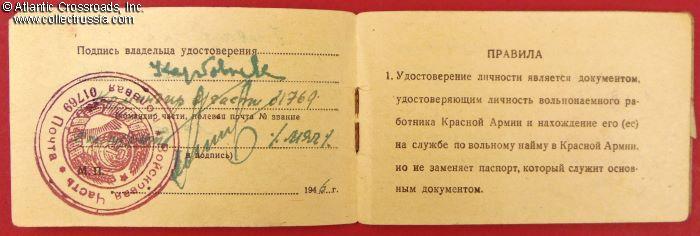 © Atlantic Crossroads, Inc.
www.collectrussia.com
Подпись владельца удостоверения
Командир в/части 01769
(командир части, полевая почта № звание
и подпись)
М.П.
1946 г.
Войсковая Часть Полевая Почта 01769
ПРАВИЛА
1. Удостоверение личности является документом,
удостоверяющим личность вольнонаемного ра-
ботника Красной Армии и нахождение его (ее)
на службе по вольному найму в Красной Армии,
но не заменяет паспорт, который служит основ-
ным документом.